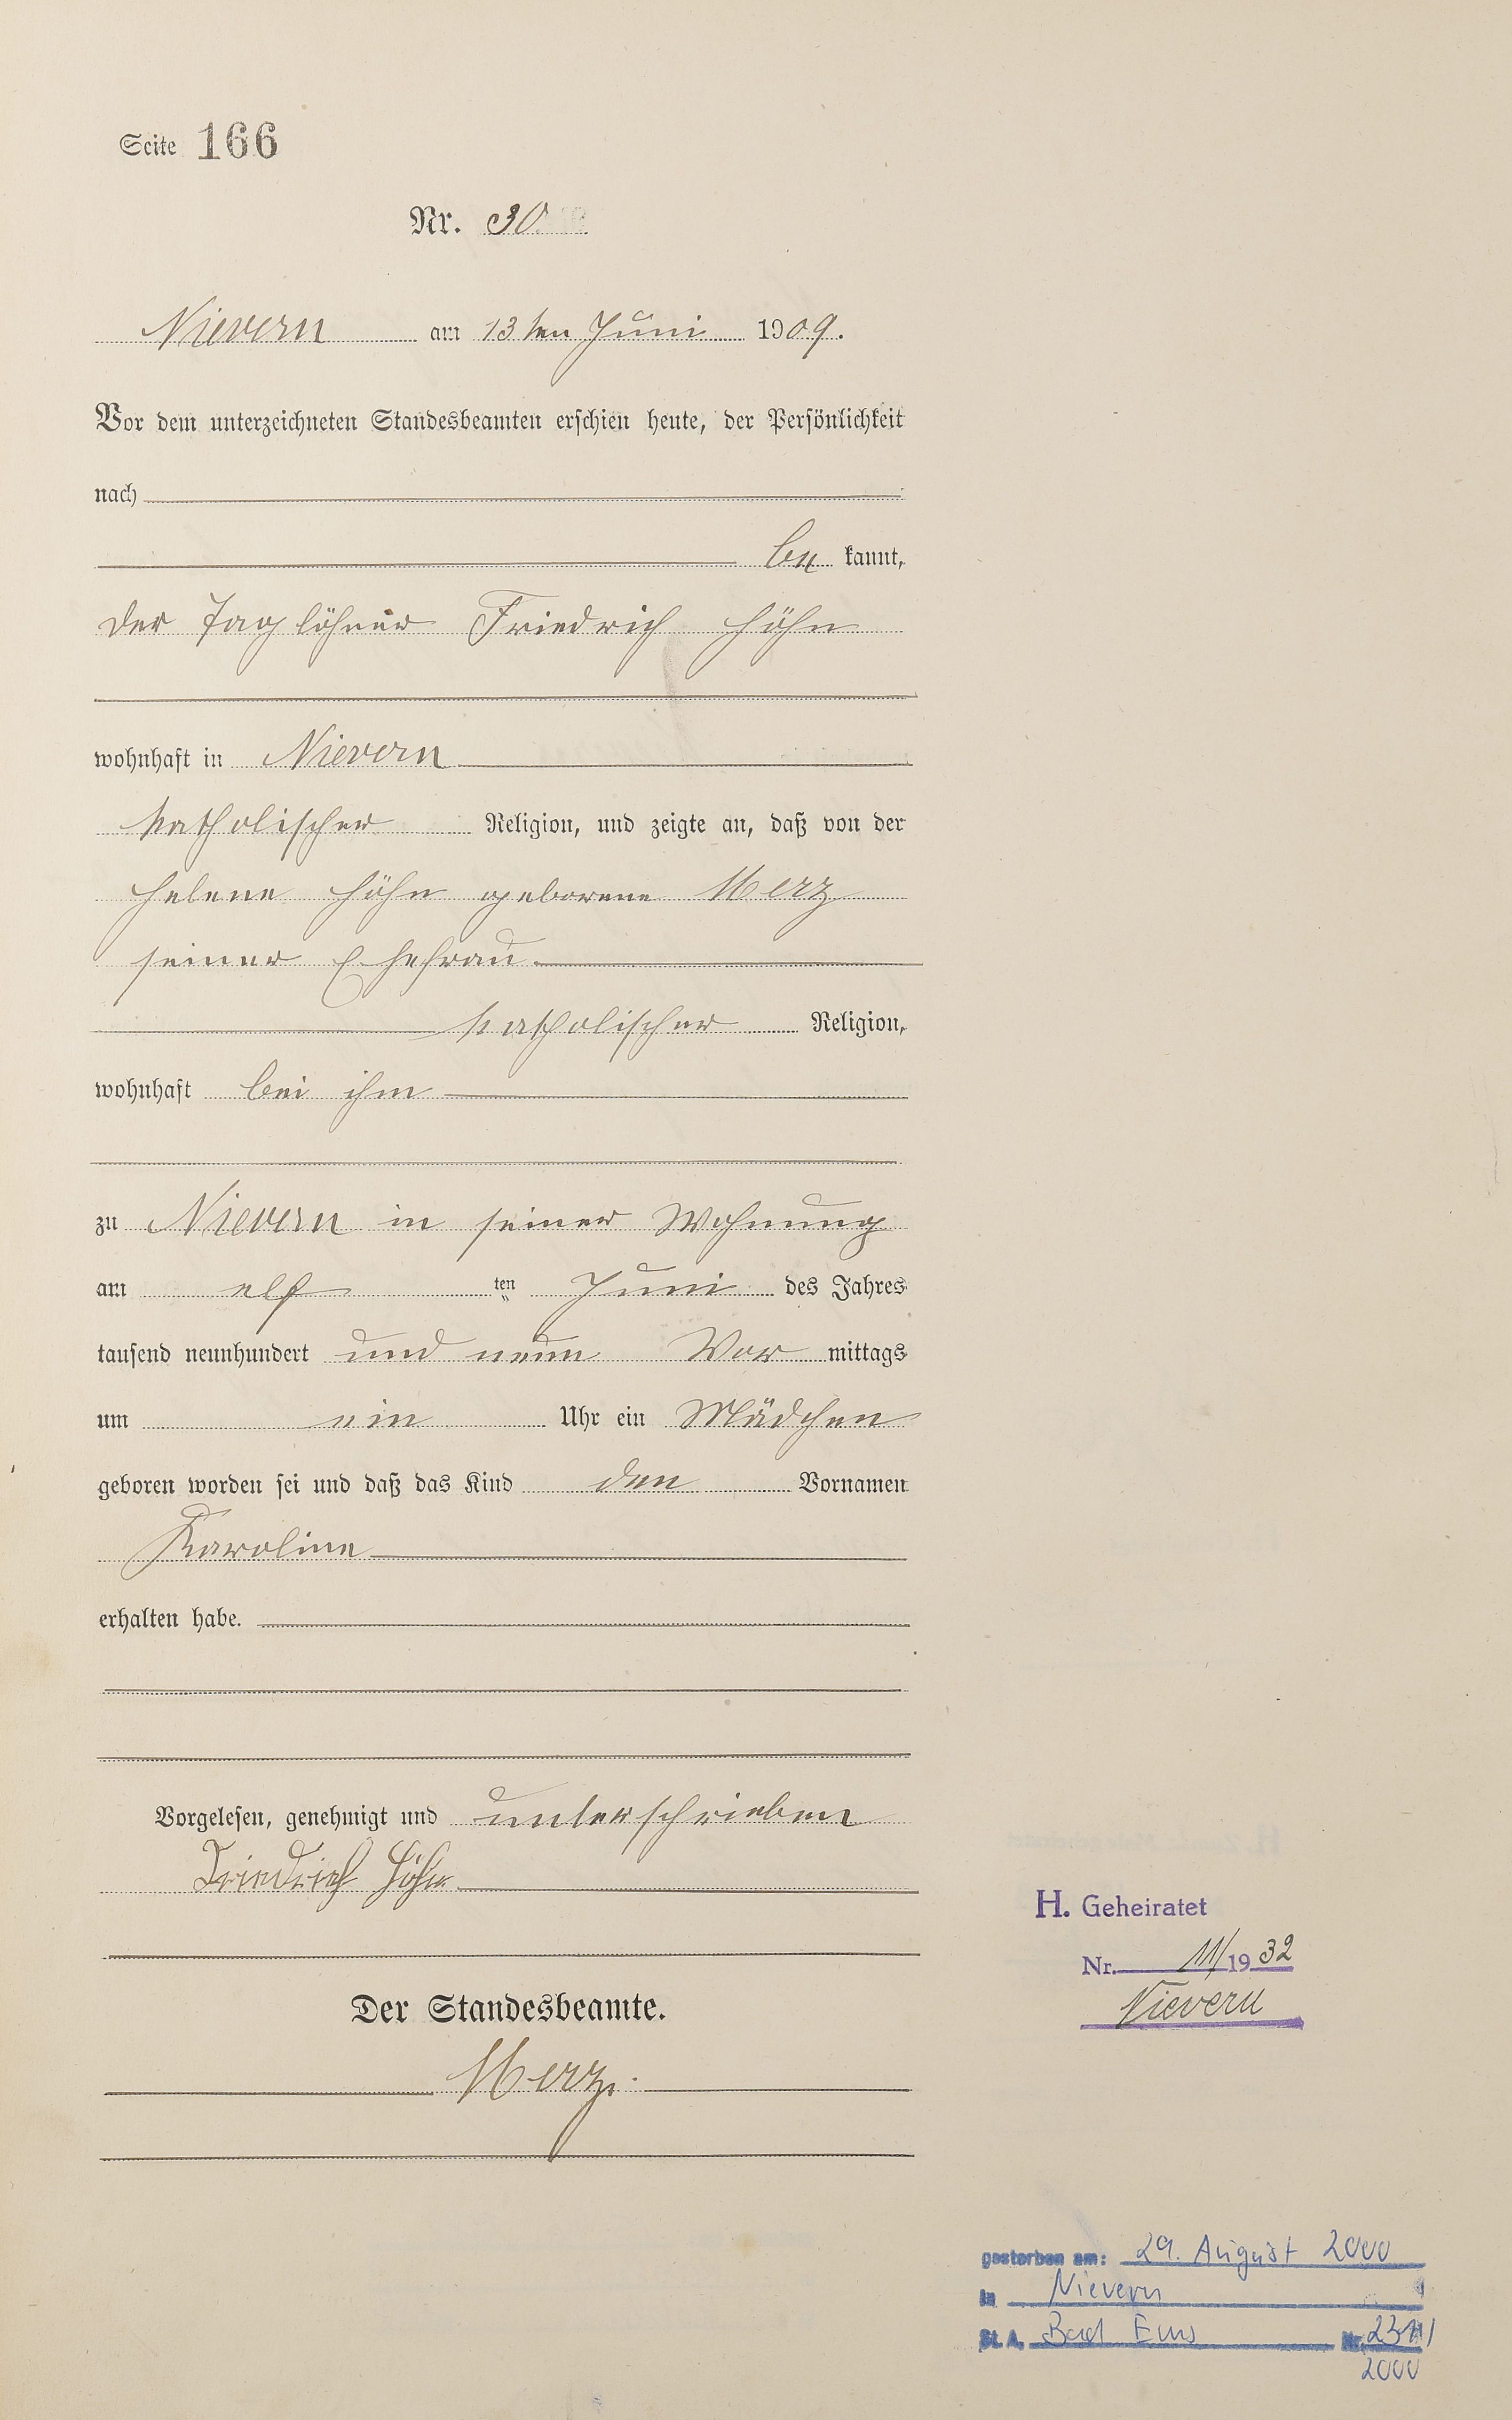 Seite 166
Nr. 30.
Nievern am 13ten Juni 1909.
Vor dem unterzeichneten Standesbeamten erschien heute, der Persönlichkeit
nach
be kannt,
der Taglöhner Friedrich Höhn
wohnhaft in Nievern
katholischer Religion, und zeigte an, daß von der
Helene Höhn geborene Merz
seiner Ehefrau
katholischer Religion,
wohnhaft bei ihm
zu Nievern in seiner Wohnung
am elf ten Juni des Jahres
tausend neunhundert und neun Vor mittags
um ein Uhr ein Mädchen
geboren worden sei und daß das Kind den Vornamen
Karoline
erhalten habe.
Vorgelesen, genehmigt und unterschrieben
Friedrich Höhn
Der Standesbeamte.
Merz.
H. Geheiratet
Nr. 11/1932
Nievern
gestorben am: 29. August 2000
in Nievern
St. A. Bad Ems Nr.
2000